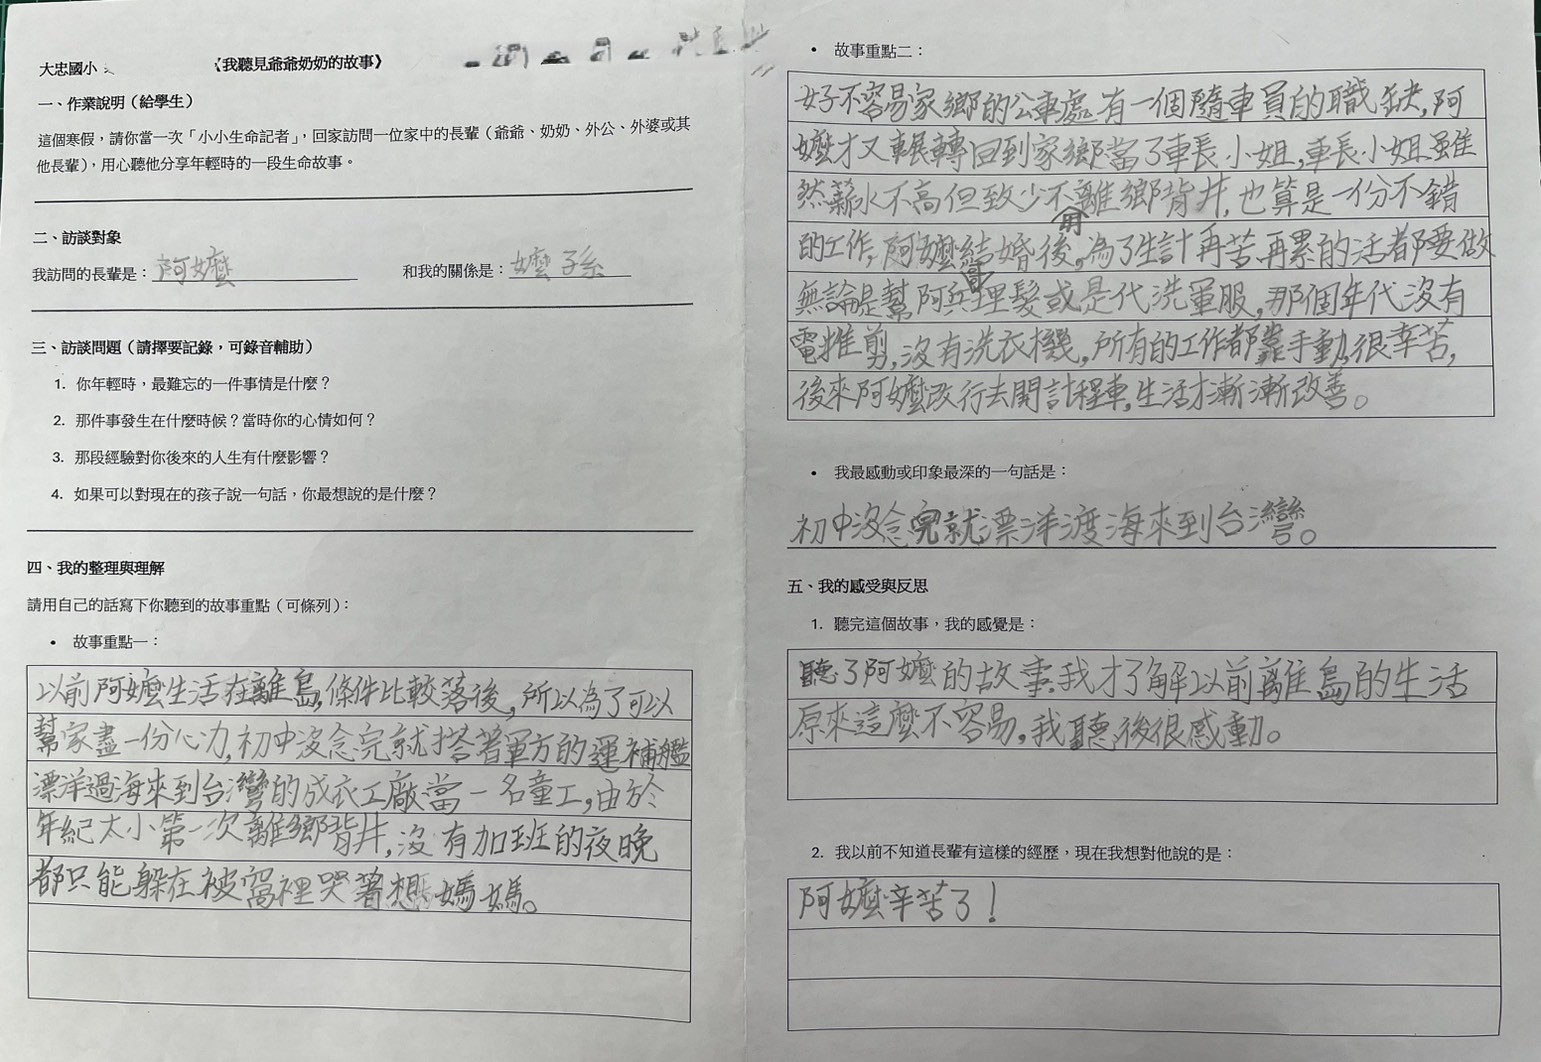 大忠國小
《我聽見爺爺奶奶的故事》
一、作業說明（給學生）
這個寒假，請你當一次「小小生命記者」，回家訪問一位家中的長輩（爺爺、奶奶、外公、外婆或其
他長輩），用心聽他分享年輕時的一段生命故事。
二、訪談對象
我訪問的長輩是：阿嬤 和我的關係是：嬤孫
三、訪談問題（請擇要記錄，可錄音輔助）
1. 你年輕時，最難忘的一件事情是什麼？
2. 那件事發生在什麼時候？當時你的心情如何？
3. 那段經驗對你後來的人生有什麼影響？
4. 如果可以對現在的孩子說一句話，你最想說的是什麼？
四、我的整理與理解
請用自己的話寫下你聽到的故事重點（可條列）：
• 故事重點一：
以前阿嬤生活在離島，條件比較落後，所以為了可以
幫家盡一份心力，初中沒念完就搭著軍方的運補艦
漂洋過海來到台灣的成衣工廠當一名童工，由於
年紀太小第一次離鄉背井，沒有加班的夜晚
都只能躲在被窩裡哭著想媽媽。
• 故事重點二：
好不容易家鄉的公車處有一個隨車員的職缺，阿
嬤才又輾轉回到家鄉當了車長小姐，車長小姐雖
然薪水不高但致少不用離鄉背井，也算是一份不錯
的工作，阿嬤結婚後，為了生計再苦再累的活都要做
無論是幫阿兵哥理髮或是代洗軍服，那個年代沒有
電推剪，沒有洗衣機，所有的工作都靠手動很辛苦，
後來阿嬤改行去開計程車，生活才漸漸改善。
• 我最感動或印象最深的一句話是：
初中沒念完就漂洋渡海來到台灣。
五、我的感受與反思
1. 聽完這個故事，我的感覺是：
聽了阿嬤的故事，我才了解以前離島的生活
原來這麼不容易，我聽後很感動。
2. 我以前不知道長輩有這樣的經歷，現在我想對他說的是：
阿嬤辛苦了！